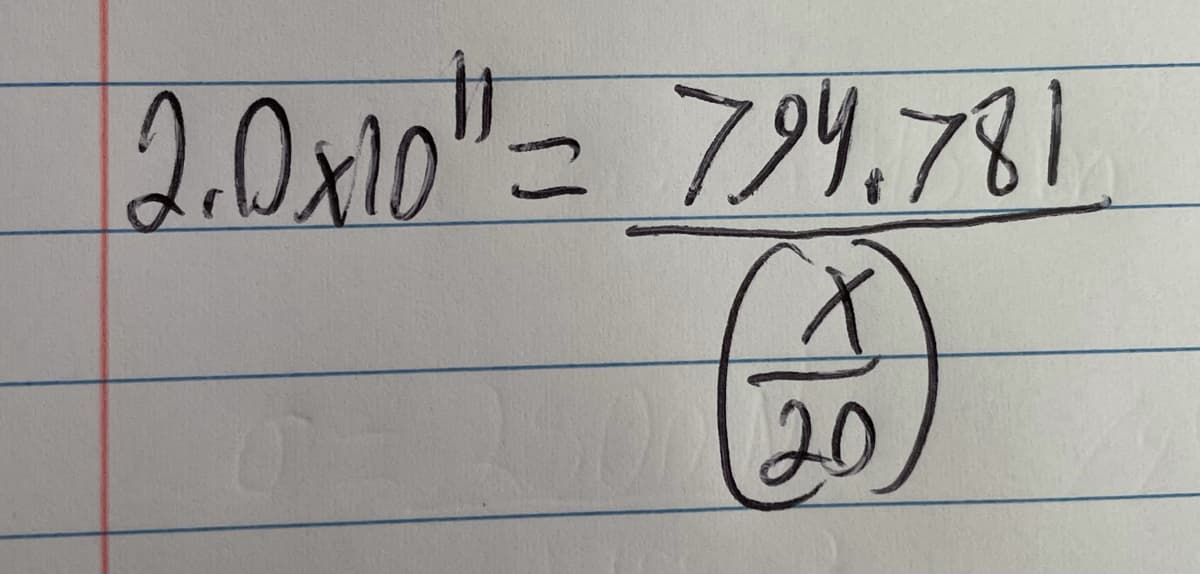 2.0x10¹¹ = 794.781
x
20